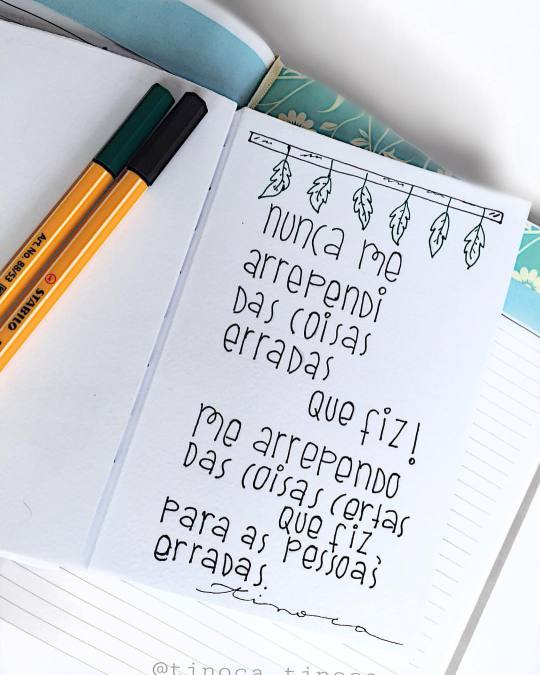 nunca me
arrependi
das coisas
erradas
que fiz!
Me arrependo
das coisas certas
que fiz,
para as pessoas
erradas.
tinoca
Art. No. 88/53
STABILO